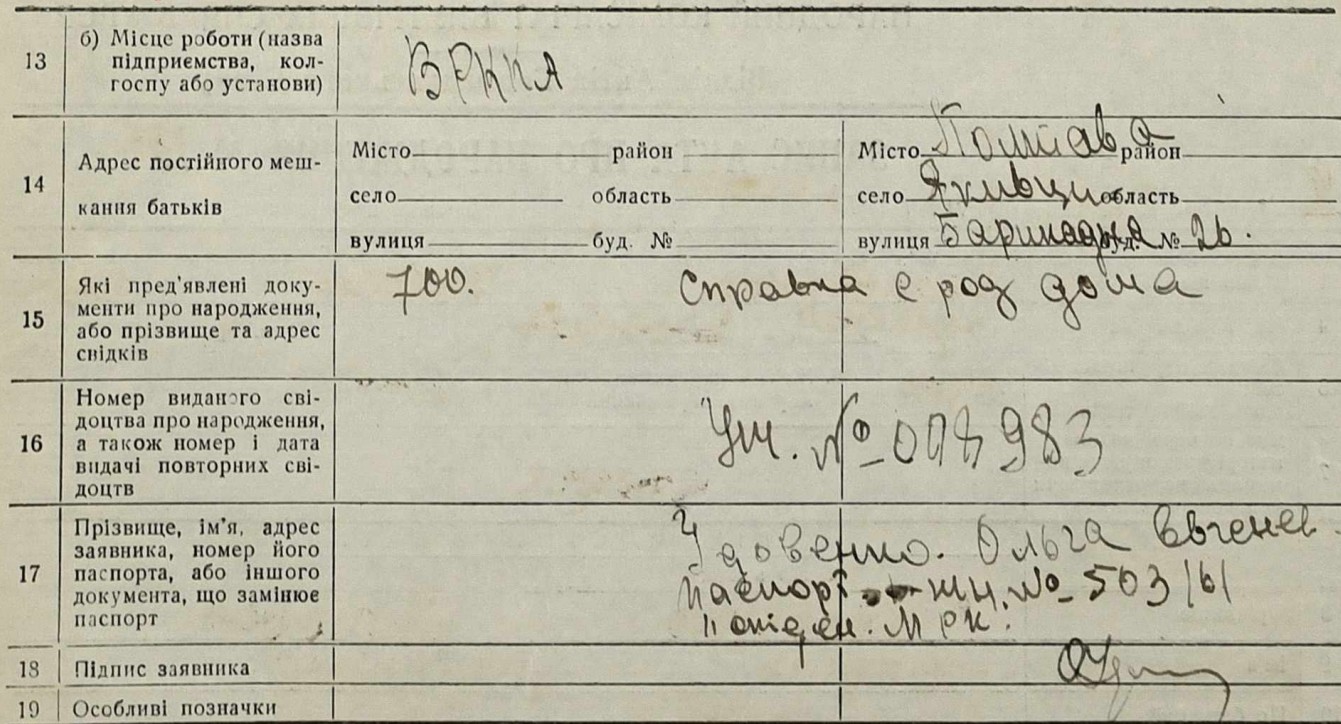 13
б) Місце роботи (назва
підприємства, кол-
госпу або установи)
В РККА
14
Адрес постійного меш-
кання батьків
Місто район
село область
вулиця буд. №
Місто Полтава район
село Яківці область
вулиця Барикадна буд. № 26.
15
Які пред'явлені доку-
менти про народження,
або прізвище та адрес
свідків
700. Справка с род дома
16
Номер виданого сві-
доцтва про народження,
а також номер і дата
видачі повторних сві-
доцтв
№ 098983
17
Прізвище, ім'я, адрес
заявника, номер його
паспорта, або іншого
документа, що замінює
паспорт
Удовенко. Ольга Євгенев.
паспорт № 503161
18
Підпис заявника
19
Особливі позначки